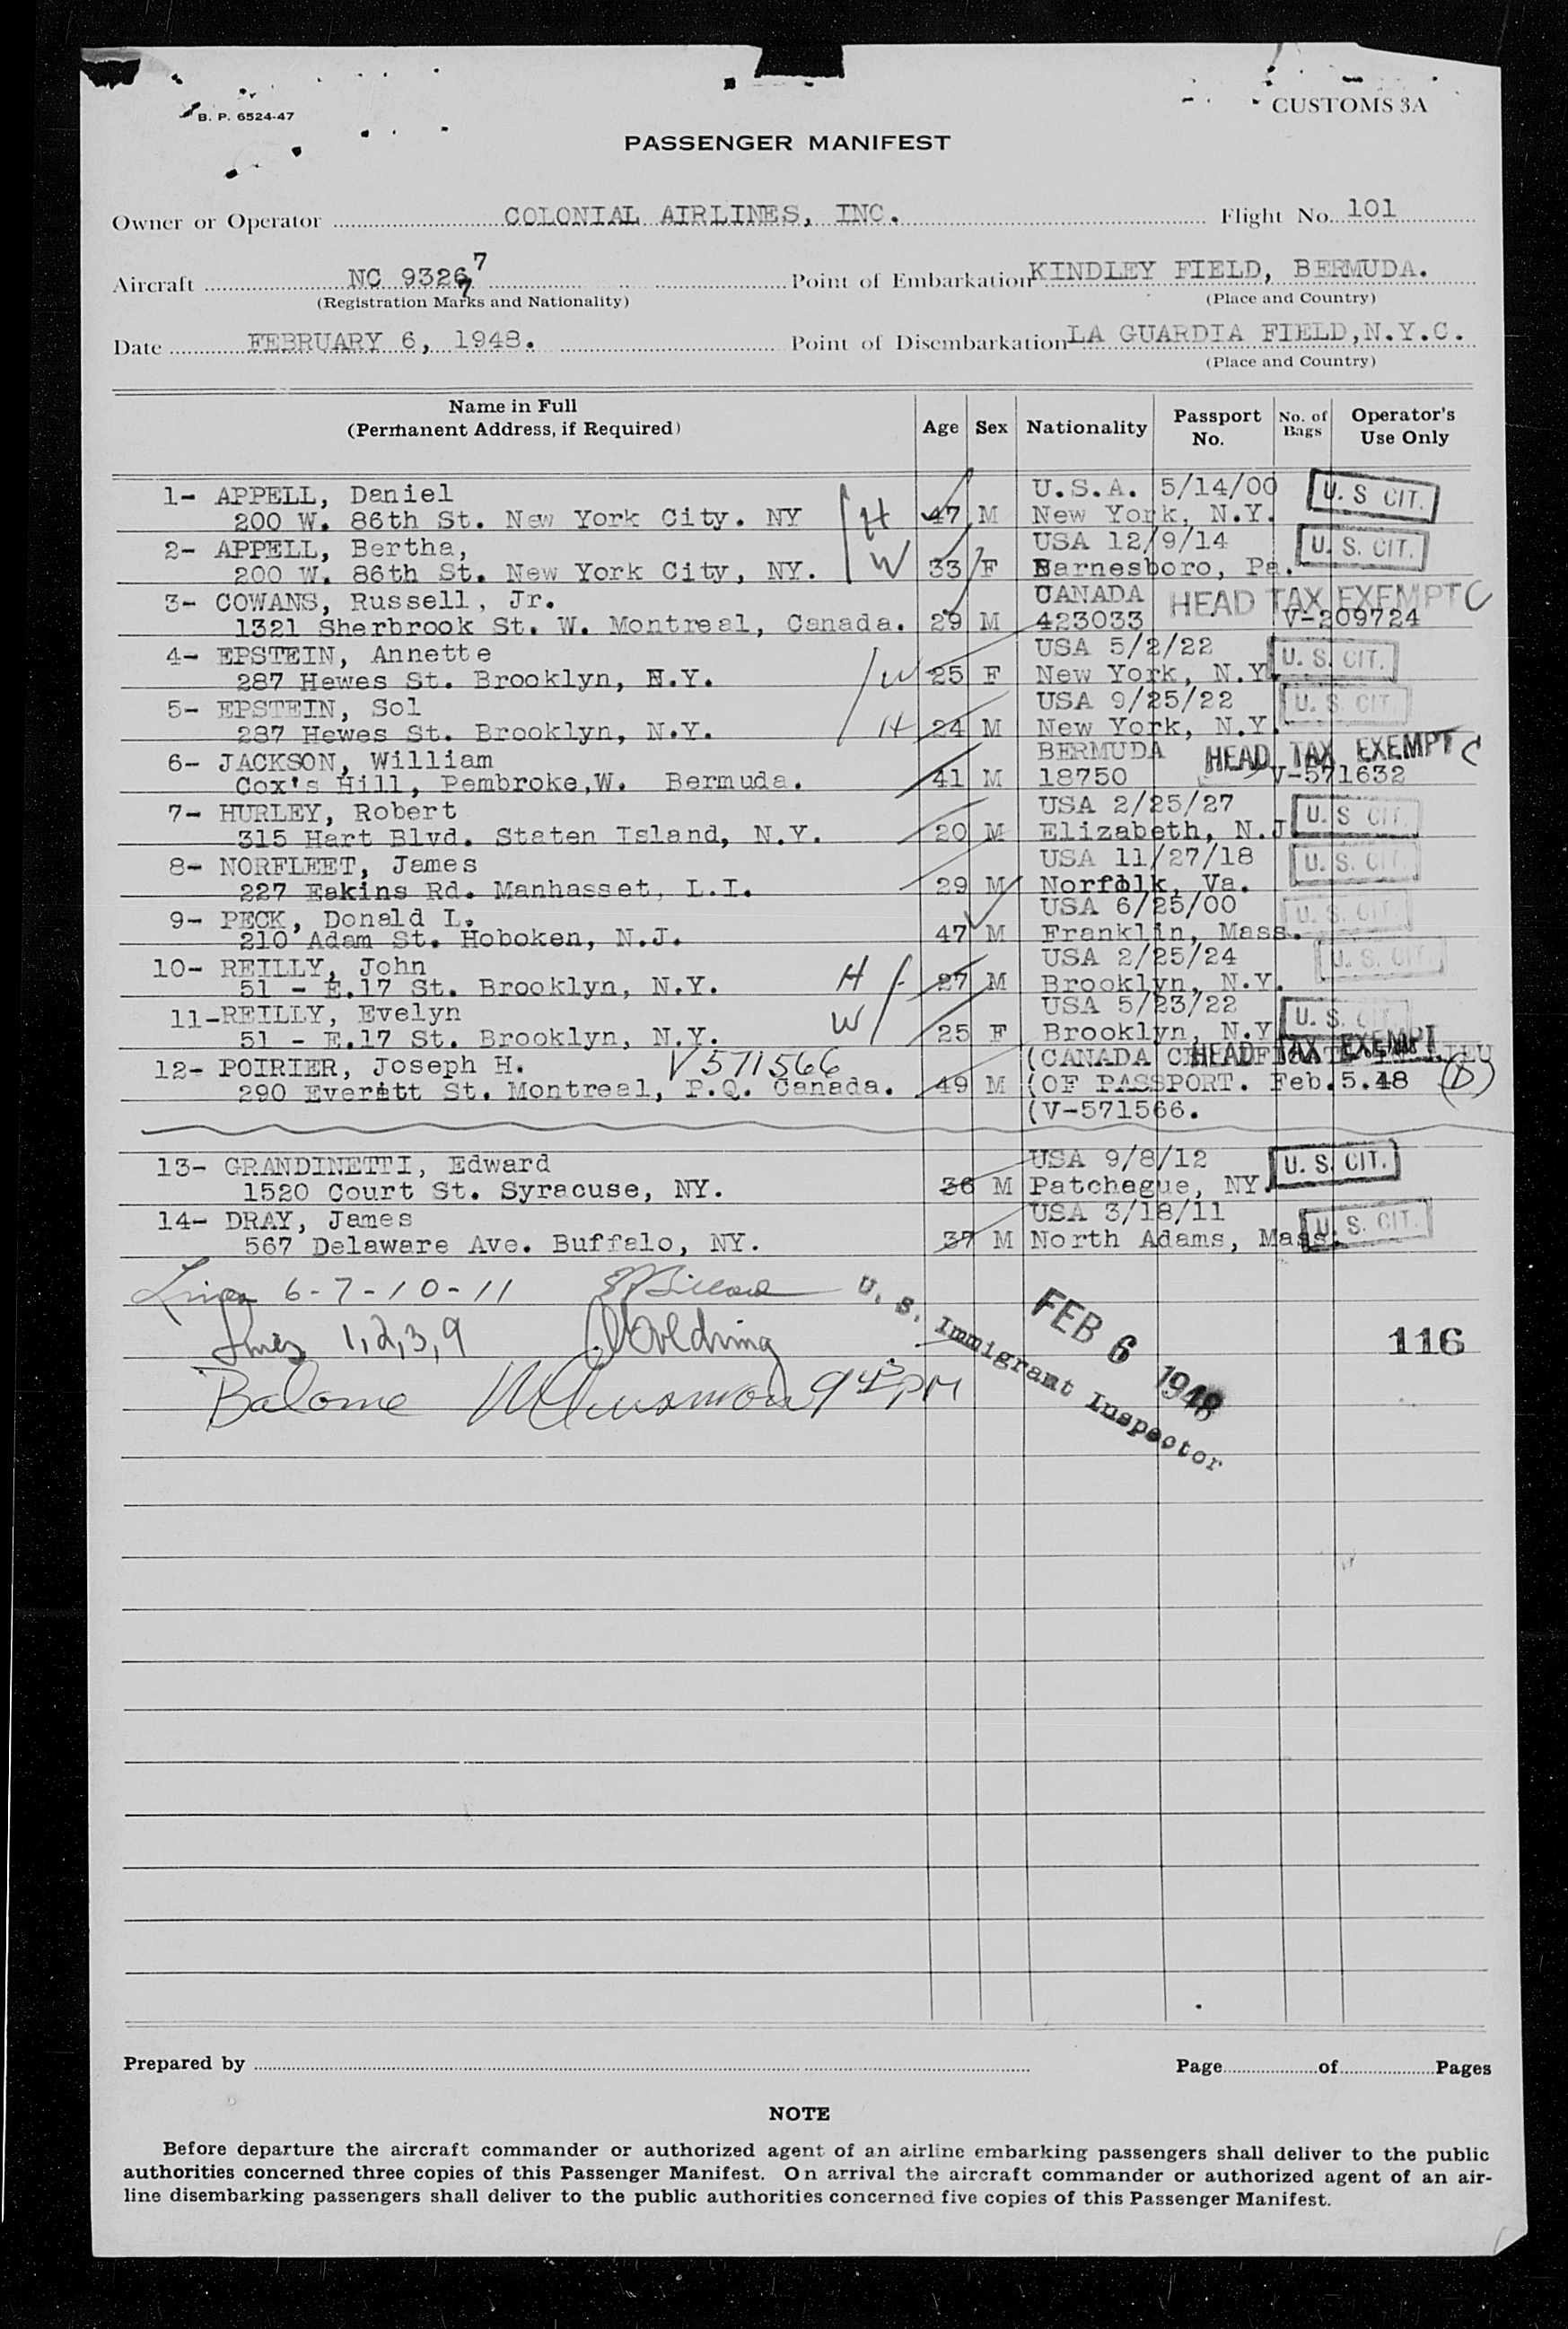 B. P. 6524-47
CUSTOMS 3A
PASSENGER MANIFEST
Owner or Operator COLONIAL AIRLINES, INC. Flight No. 101
Aircraft NC 93267 Point of Embarkation KINDLEY FIELD, BERMUDA.
(Registration Marks and Nationality) (Place and Country)
Date FEBRUARY 6, 1948. Point of Disembarkation LA GUARDIA FIELD,N.Y.C.
(Place and Country)
Name in Full Age Sex Nationality Passport No. No. of Bags Operator's Use Only
(Permanent Address, if Required)
1- APPELL, Daniel U.S.A. 5/14/00 U. S CIT.
200 W. 86th St. New York City. NY H 47 M New York, N.Y.
2- APPELL, Bertha, USA 12/9/14 U. S. CIT.
200 W. 86th St. New York City, NY. W 33 F Barnesboro, Pa.
3- COWANS, Russell, Jr. CANADA HEAD TAX EXEMPT C
1321 Sherbrook St. W. Montreal, Canada. 29 M 423033 V-209724
4- EPSTEIN, Annette USA 5/2/22 U. S. CIT.
287 Hewes St. Brooklyn, N.Y. W 25 F New York, N.Y.
5- EPSTEIN, Sol USA 9/25/22 U. S. CIT.
287 Hewes St. Brooklyn, N.Y. H 24 M New York, N.Y.
6- JACKSON, William BERMUDA HEAD TAX EXEMPT C
Cox's Hill, Pembroke,W. Bermuda. 41 M 18750 V-571632
7- HURLEY, Robert USA 2/25/27 U. S CIT.
315 Hart Blvd. Staten Island, N.Y. 20 M Elizabeth, N.J
8- NORFLEET, James USA 11/27/18 U. S. CIT.
227 Eakins Rd. Manhasset, L.I. 29 M Norfolk, Va.
9- PECK, Donald L. USA 6/25/00 U. S. CIT.
210 Adam St. Hoboken, N.J. 47 M Franklin, Mass.
10- REILLY, John USA 2/25/24 U. S. CIT.
51 - E.17 St. Brooklyn, N.Y. H 27 M Brooklyn, N.Y.
11-REILLY, Evelyn USA 5/23/22 U. S. CIT.
51 - E.17 St. Brooklyn, N.Y. W 25 F Brooklyn, N.Y
12- POIRIER, Joseph H. V 571566 (CANADA CERTIFICATE IN LIEU HEAD TAX EXEMPT
290 Everett St. Montreal, P.Q. Canada. 49 M (OF PASSPORT. Feb.5.48 (D)
(V-571566.
13- GRANDINETTI, Edward USA 9/8/12 U. S. CIT.
1520 Court St. Syracuse, NY. 36 M Patchague, NY.
14- DRAY, James USA 3/18/11 U. S. CIT.
567 Delaware Ave. Buffalo, NY. 37 M North Adams, Mass.
Lines 6-7-10-11
Lines 1,2,3,9
116
Balance 9 45 PM
U. S. Immigrant Inspector
FEB 6 1948
Prepared by Page of Pages
NOTE
Before departure the aircraft commander or authorized agent of an airline embarking passengers shall deliver to the public
authorities concerned three copies of this Passenger Manifest. On arrival the aircraft commander or authorized agent of an air-
line disembarking passengers shall deliver to the public authorities concerned five copies of this Passenger Manifest.